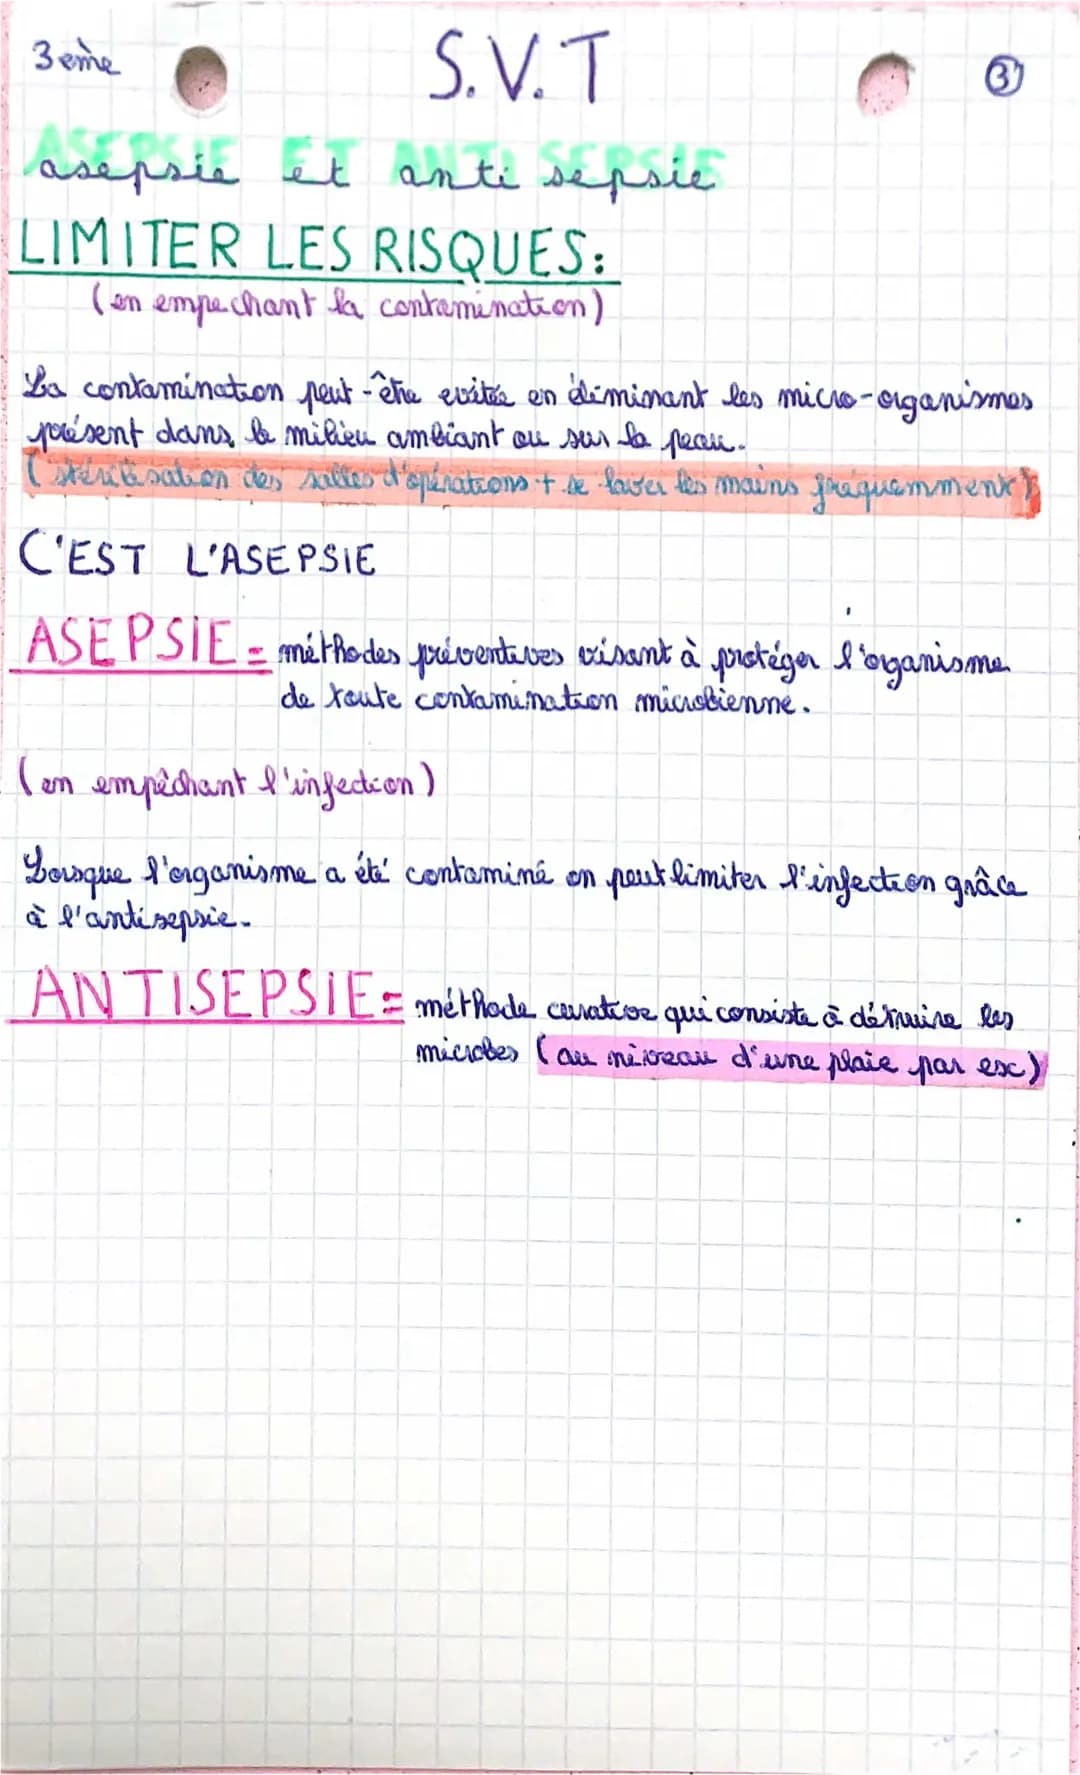 3 eme
S.V.T
3
ASEPSIE ET ANTI SEPSIE
asepsie et anti sepsie
LIMITER LES RISQUES:
(en empechant la contamination)
La contamination peut-être evitée en éliminant les micro-organismes
présent dans le milieu ambiant ou sur la peau.
(stérilisation des salles d'opérations + se laver les mains fréquemment)
C'EST L'ASEPSIE
ASEPSIE = méthodes préventives visant à protéger l'organisme
de toute contamination microbienne.
(en empêchant l'infection)
Lorsque l'organisme a été contaminé on peut limiter l'infection grâce
à l'antisepsie.
ANTISEPSIE = méthode curative qui consiste à détruire les
microbes (au niveau d'une plaie par ex)